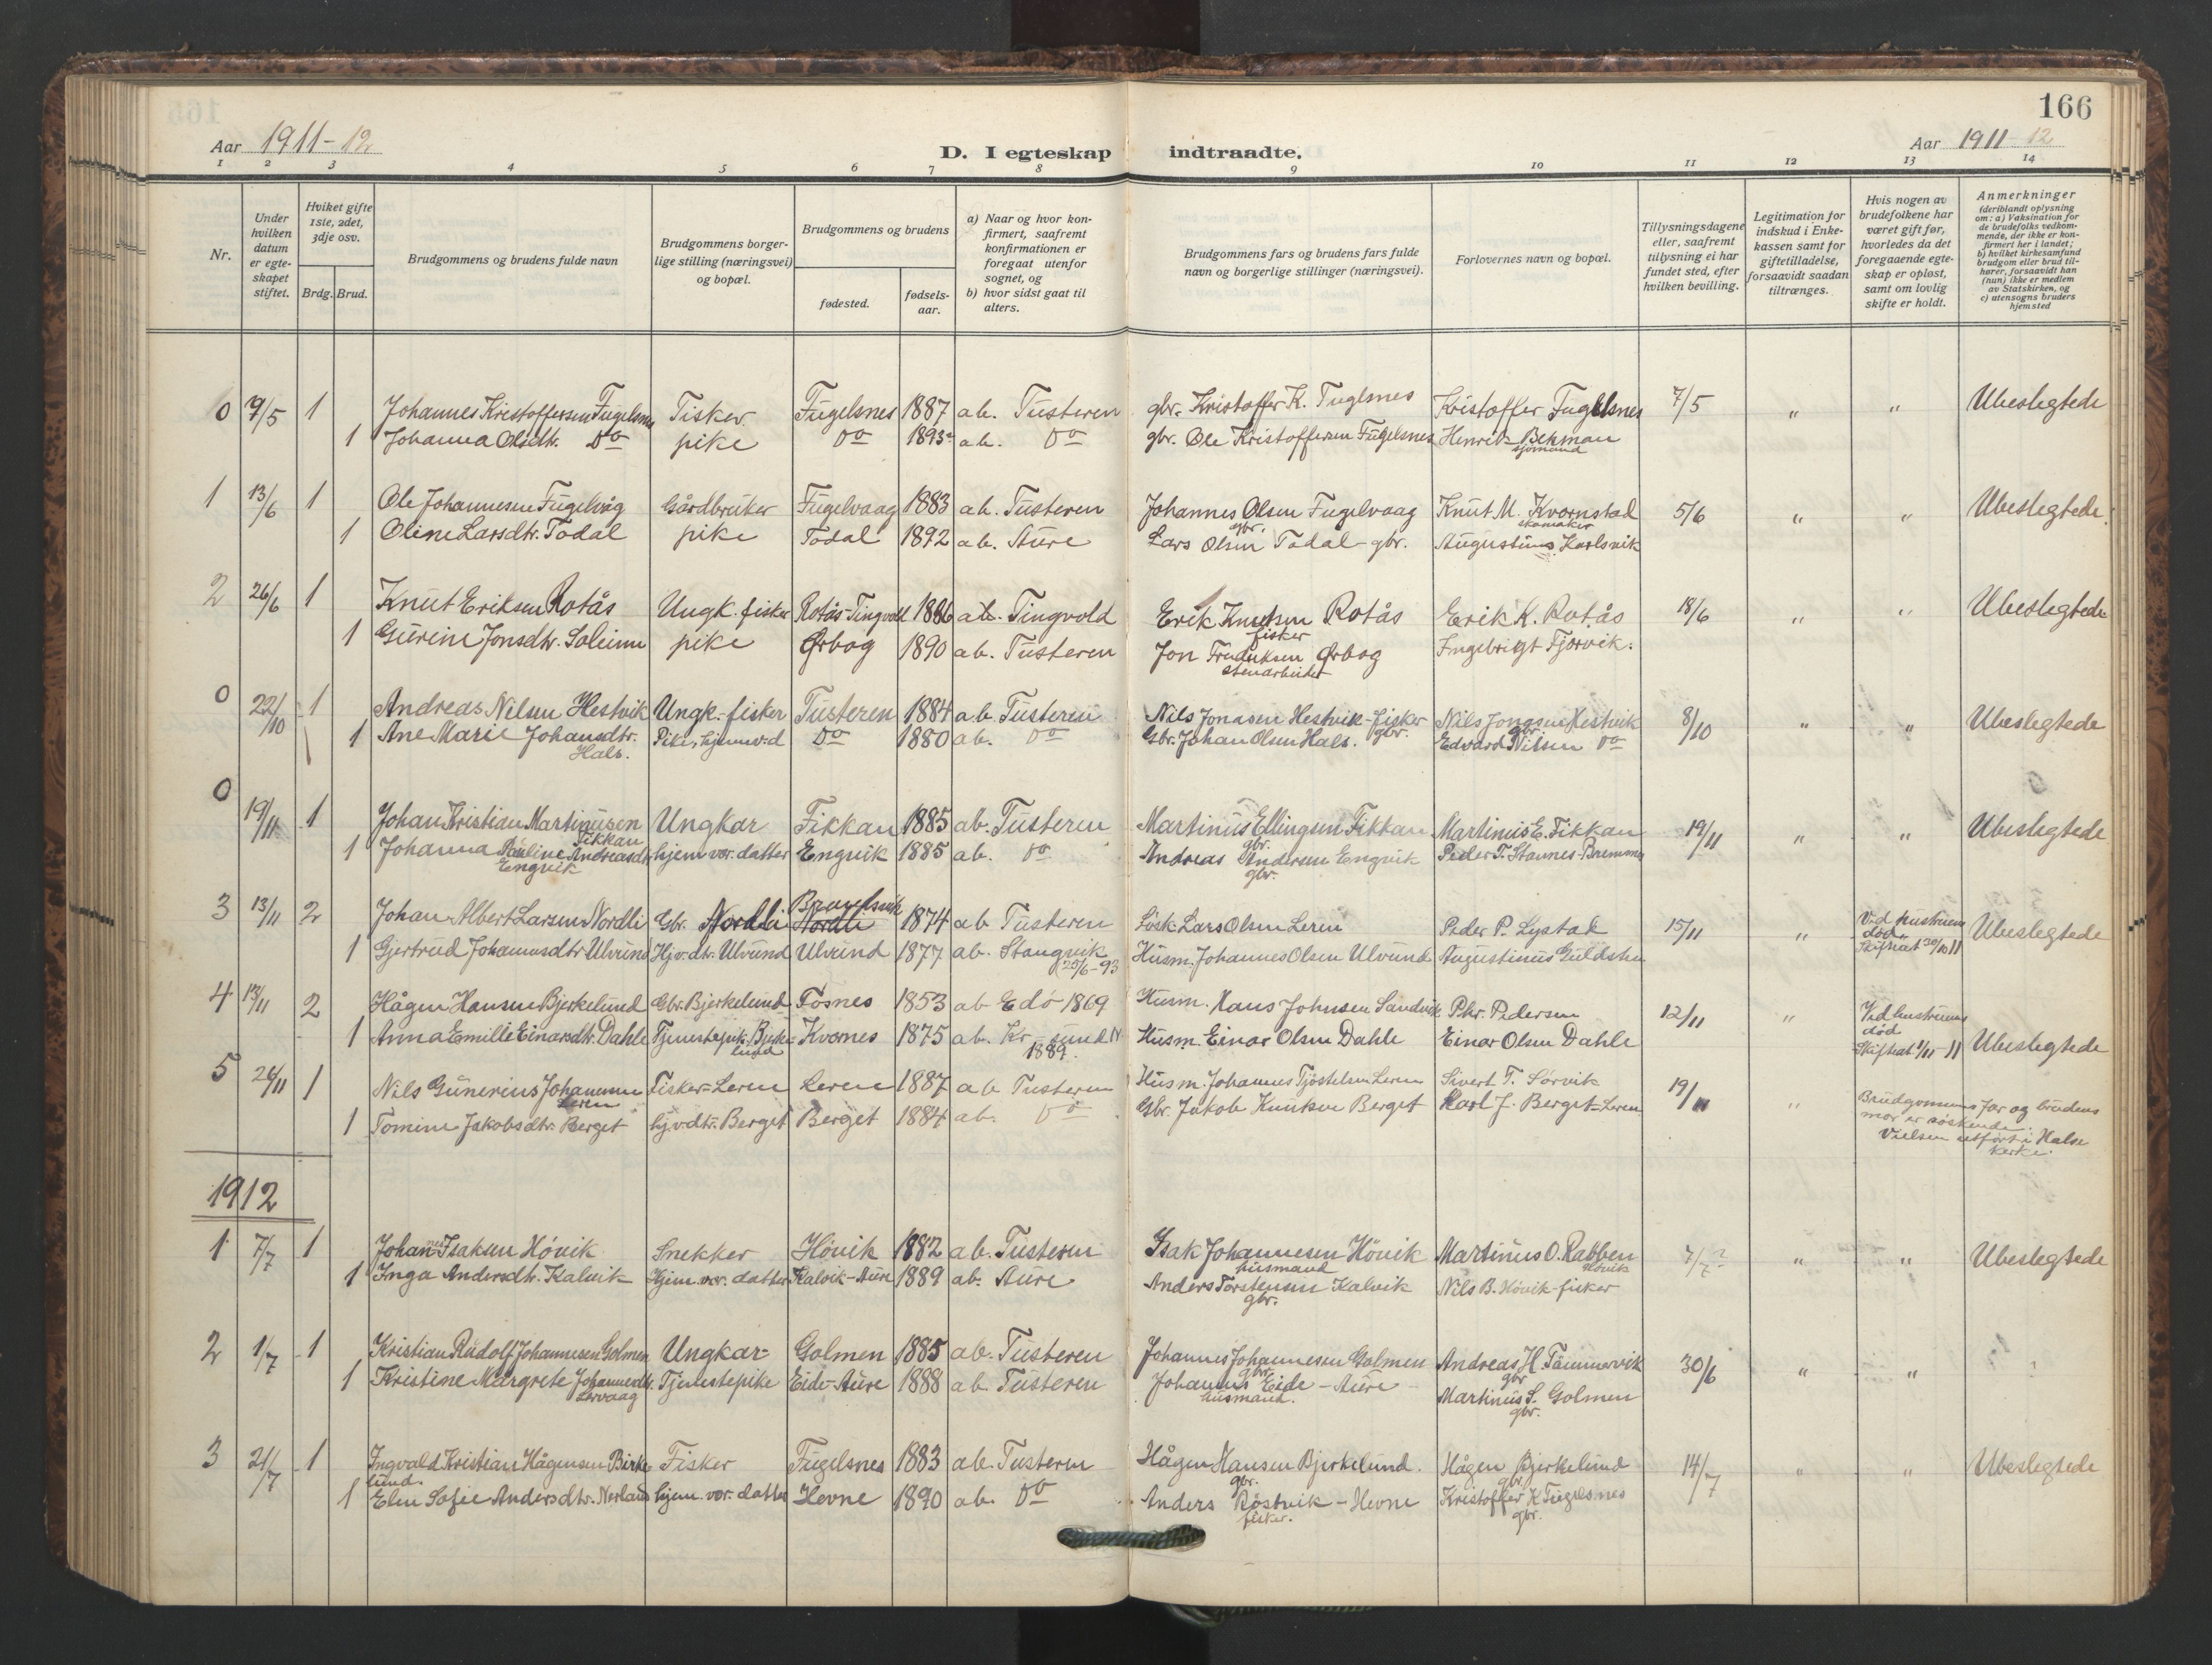 166
Aar 1911-12
D. I egteskap indtraadte.
Aar 1911-12
1 2 3 4 5 6 7 8 9 10 11 12 13 14
Nr.
Under hvilken datum er egteskapet stiftet.
Hvilket gifte 1ste, 2det, 3dje osv.
Brdg. Brud.
Brudgommens og brudens fulde navn
Brudgommens borgerlige stilling (næringsvei) og bopæl.
Brudgommens og brudens
fødested.
fødselsaar.
a) Naar og hvor konfirmert, saafremt konfirmationen er foregaat utenfor sognet, og
b) hvor sidst gaat til alters.
Brudgommens fars og brudens fars fulde navn og borgerlige stillinger (næringsvei).
Forlovernes navn og bopæl.
Tillysningsdagene eller, saafremt tillysning ei har fundet sted, efter hvilken bevilling.
Legitimation for indskud i Enkekassen samt for giftetilladelse, forsaavidt saadan tiltrænges.
Hvis nogen av brudefolkene har været gift før, hvorledes da det foregaaende egteskap er opløst, samt om lovlig skifte er holdt.
Anmerkninger
(deriblandt oplysning om: a) Vaksination for de brudefolks vedkommende, der ikke er konfirmert her i landet;
b) hvilket kirkesamfund brudgom eller brud tilhører, forsaavidt han (hun) ikke er medlem av Statskirken, og
c) utensogns bruders hjemsted
0 7/5 1 Johannes Kristoffersen Fugelsnes Fisker Fugelsnes 1887 a b. Tusteren gbr. Kristoffer K. Fuglsnes Kristoffer Fugelsnes 7/5 " " Ubeslegtede
1 Johanna Olsdtr. Do pike Do 1893 a b. Do gbr. Ole Kristoffersen Fugelsnes Henrik Bekman
sjømand
1 13/6 1 Ole Johannesen Fugelvåg Gårdbruker Fugelvaag 1883 a b. Tusteren Johannes Olsen Fugelvaag Knut M. Kvornstad 5/6 " " Ubeslegtede.
gbr. skomaker
1 Oline Larsdtr. Todal pike Todal 1892 a b. Aure Lars Olsen Todal - gbr. Augustinus Karlsvik
2 26/6 1 Knut Eriksen Rotås Ungk. fisker Rotås-Tingvoll 1886 a b. Tingvold Erik Knutsen Rotås Erik K. Rotås 18/6 " " Ubeslegtede
fisker
1 Gurine Jonsdtr. Soleim pike Ørbog 1890 a b. Tusteren Jon Fredriksen Ørbog Ingebrigt Fjorvik.
stenarbeider
0 22/10 1 Andreas Nilsen Hestvik Ungk.-fisker Tusteren 1884 a b. Tusteren Nils Jonasen Hestvik - fisker Nils Jonasen Hestvik 8/10 " " Ubeslegtede
gbr. gbr.
1 Ane Marie Johansdtr. Pike, hjemv.d Do 1880 a b. Do Gbr. Johan Olsen Hals. Edvard Nilsen Do
Hals.
0 19/11 1 Johan Kristian Martinusen Ungkar Fikkan 1885 a b. Tusteren Martinus Ellingsen Fikkan Martinus E. Fikkan 19/11 " " Ubeslegtede
Fikkan gbr.
1 Johanna Pauline Andreasdtr hjem vær. datter Engvik 1885 a b. Do Andreas Andersen Engvik Peder T. Stavnes-Bremsnes
Engvik gbr.
3 13/11 2 Johan Albert Larsen Nordli Gbr. Nordli Nordli 1874 a b Tusteren Søsk Lars Olsen Leren Peder P. Lystad 15/11 " Ved hustruens død Skifteat. 30/10 11 Ubeslegtede
1 Gjertrud Johannesdtr Ulvund Hj.v.dtr. Ulvund Ulvund 1877 a b. Stangvik Husm. Johannes Olsen Ulvund Augustinus Guldsten
25/6-93
4 13/11 2 Hågen Hansen Bjerkelund Gbr. Bjerkelund Fosnes 1853 a b Edø 1869 Husm. Hans Johnsen Sandvik P.kr. Pedersen 12/11 " Ved hustruens død Skifteat. 1/11-11 Ubeslegtede
1 Anna Emilie Einarsdtr. Dahle Tjenestepik. Bjerkelund Kvernes 1875 a b. Kr-sund N 1889. Husm. Einar Olsen Dahle Einar Olsen Dahle
5 26/11 1 Nils Gunerius Johannesen Fisker-Leren Leren 1887 a b Tusteren Husm. Johannes Tjøstelsen Leren Sivert T. Sørvik 19/11 " Brudgommens far og brudens mor er søskende.
Leren
1 Tomine Jakobsdtr. Berget hj.v.dtr. Berget Berget 1884 a b. Do Gbr. Jakob Knutsen Berget Karl J. Berget-Leren Vielsen utført i Halse kirke.
1912
1 7/7 1 Johannes Isaksen Høvik Snekker Høvik 1882 a b. Tusteren Isak Johannesen Høvik Martinus O. Rabben 7/7? " " Ubeslegtede
husmand Høvik
1 Inga Andersdtr. Kalvik Hjem. vær. datter Kalvik-Aure 1889 a b. Aure Anders Torstensen Kalvik Nils B. Høvik-fisker
gbr.
2 1/7 1 Kristian Rudolf Johannesen Golmen Ungkar- Golmen 1885 a b. Tusteren Johannes Johannesen Golmen Andreas H. Tømmervik 30/6 " "
gbr. gbr
1 Kristine Margrete Johannesdtr. Tjenestepike Eide-Aure 1888 a b. Tusteren Johannes Eide - Aure Martinus S. Golmen
Lervaag husmand. gbr.
3 21/7 1 Ingvald Kristian Hågensen Birkelund Fisker Fugelsnes 1883 a b. Tusteren Hågen Hansen Bjerkelund. Hågen Bjerkelund 14/7 " " Ubeslegtede
gbr. gbr.
1 Elen Sofie Andersdtr. Nerland hjem. vær. datter Hevne 1890 a b. Do Anders Røstvik - Hevne Kristoffer K Fugelsnes
fisker. gbr.